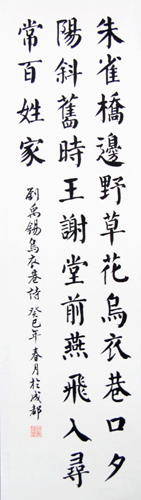 朱雀橋邊野草花烏衣巷口夕
陽斜舊時王謝堂前燕飛入尋
常百姓家
劉禹錫烏衣巷詩 癸巳年春月於成都